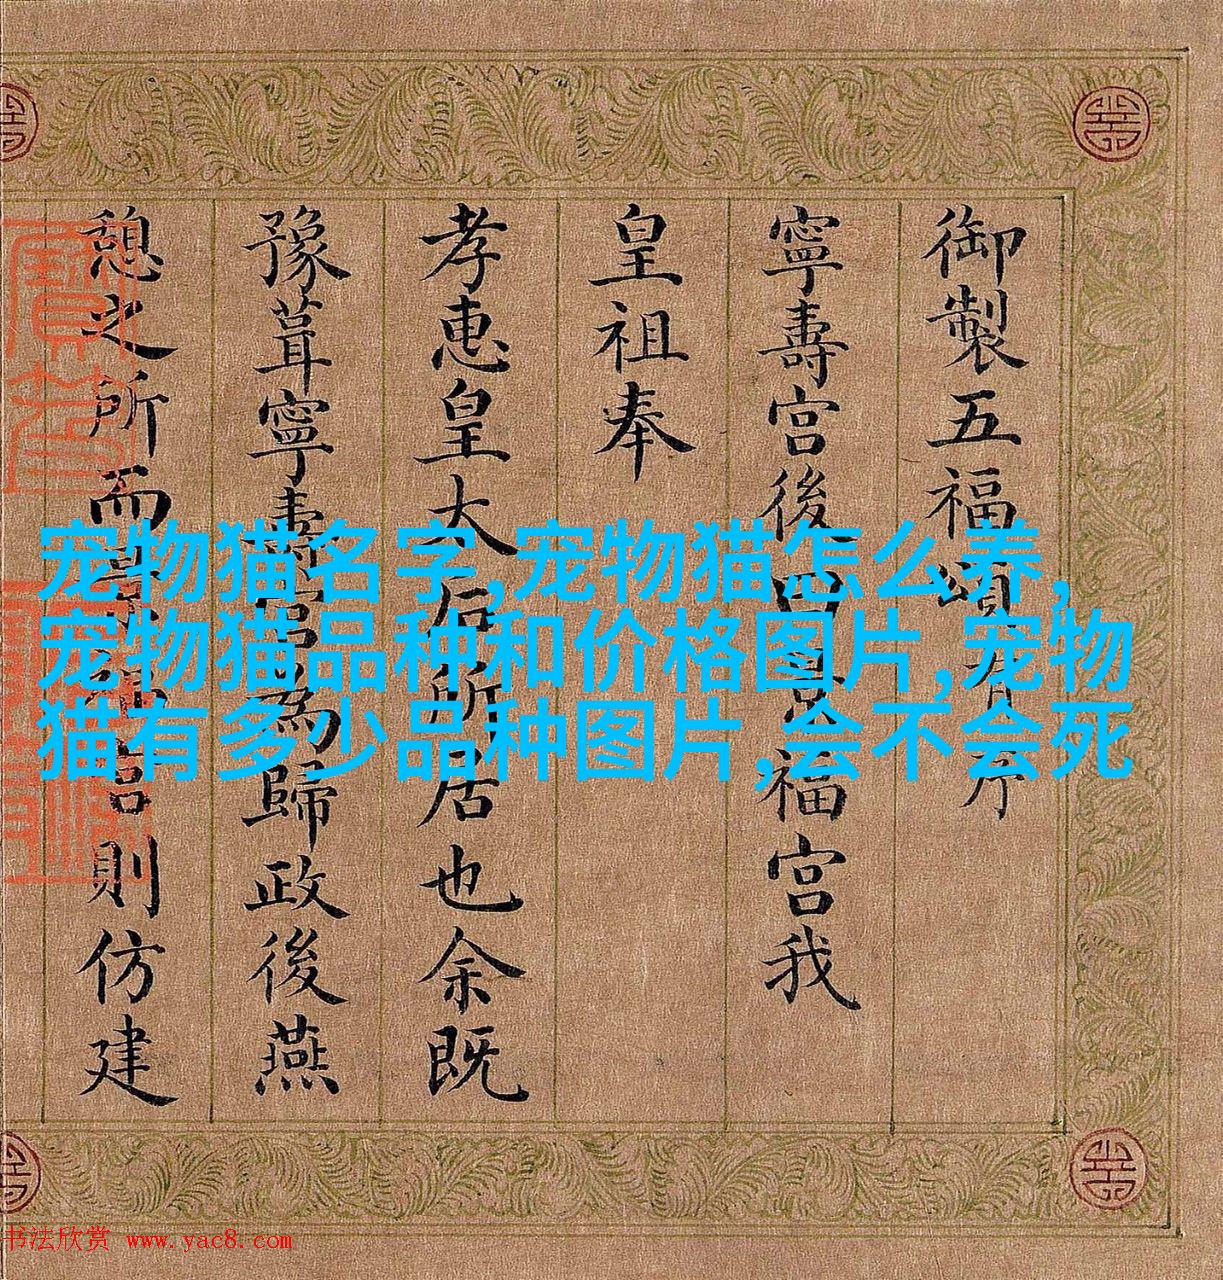 御製五福頌有序
寧壽宮後曰景福宮我
皇祖奉
孝惠皇太后所居也余既
豫葺寧壽宮為歸政後燕
憩之所而景福宮則仿建
宠物猫名字,宠物猫怎么养,
宠物猫品种和价格图片,宠物
猫有多少品种图片,会不会死
书法欣赏 www.yac8.com